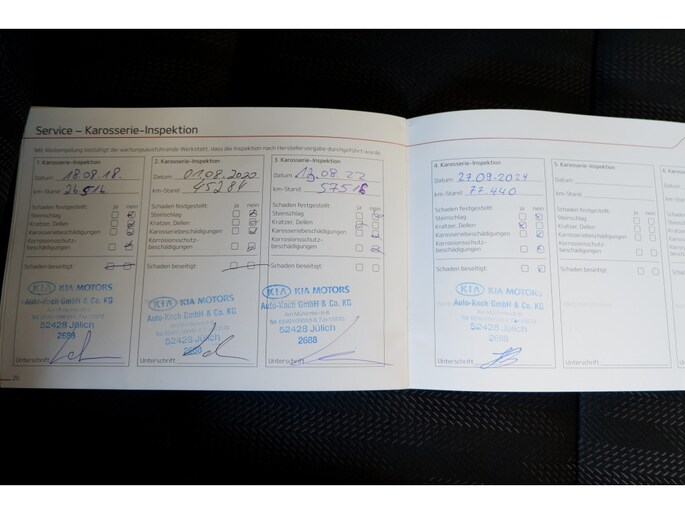 Service – Karosserie-Inspektion
Mit Abstempelung bestätigt der wartungsausführende Werkstatt, dass die Inspektion nach Herstellervorgabe durchgeführt wurde.
1. Karosserie-Inspektion
Datum 18.08.18.
km-Stand
Schaden festgestellt: ja nein
Steinschlag
Kratzer, Dellen
Karosseriebeschädigungen
Korrosionsschutz-
beschädigungen
Schaden beseitigt:
KIA KIA MOTORS
Auto-Koch GmbH & Co. KG
52428 Jülich
2688
Unterschrift
2. Karosserie-Inspektion
Datum 01.08.2020
km-Stand 45284
Schaden festgestellt: ja nein
Steinschlag
Kratzer, Dellen
Karosseriebeschädigungen
Korrosionsschutz-
beschädigungen
Schaden beseitigt:
KIA KIA MOTORS
Auto-Koch GmbH & Co. KG
52428 Jülich
2688
Unterschrift
3. Karosserie-Inspektion
Datum 13.08.22
km-Stand 57516
Schaden festgestellt: ja nein
Steinschlag
Kratzer, Dellen
Karosseriebeschädigungen
Korrosionsschutz-
beschädigungen
Schaden beseitigt:
KIA KIA MOTORS
Auto-Koch GmbH & Co. KG
52428 Jülich
2688
Unterschrift
4. Karosserie-Inspektion
Datum 27.09.2024
km-Stand 77.440
Schaden festgestellt: ja nein
Steinschlag
Kratzer, Dellen
Karosseriebeschädigungen
Korrosionsschutz-
beschädigungen
Schaden beseitigt:
KIA KIA MOTORS
Auto-Koch GmbH & Co. KG
52428 Jülich
2688
Unterschrift
5. Karosserie-Inspektion
Datum
km-Stand
Schaden festgestellt: ja nein
Steinschlag
Kratzer, Dellen
Karosseriebeschädigungen
Korrosionsschutz-
beschädigungen
Schaden beseitigt:
Unterschrift